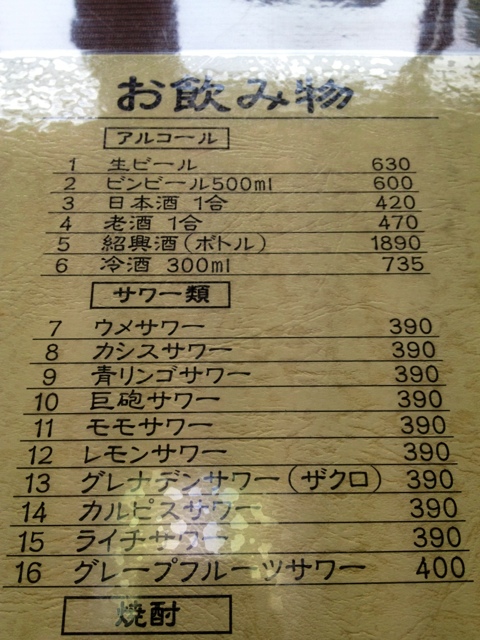 お飲み物
アルコール
1 生ビール 630
2 ビンビール500ml 600
3 日本酒 1合 420
4 老酒 1合 470
5 紹興酒(ボトル) 1890
6 冷酒 300ml 735
サワー類
7 ウメサワー 390
8 カシスサワー 390
9 青リンゴサワー 390
10 巨砲サワー 390
11 モモサワー 390
12 レモンサワー 390
13 グレナデンサワー(ザクロ) 390
14 カルピスサワー 390
15 ライチサワー 390
16 グレープフルーツサワー 400
焼酎